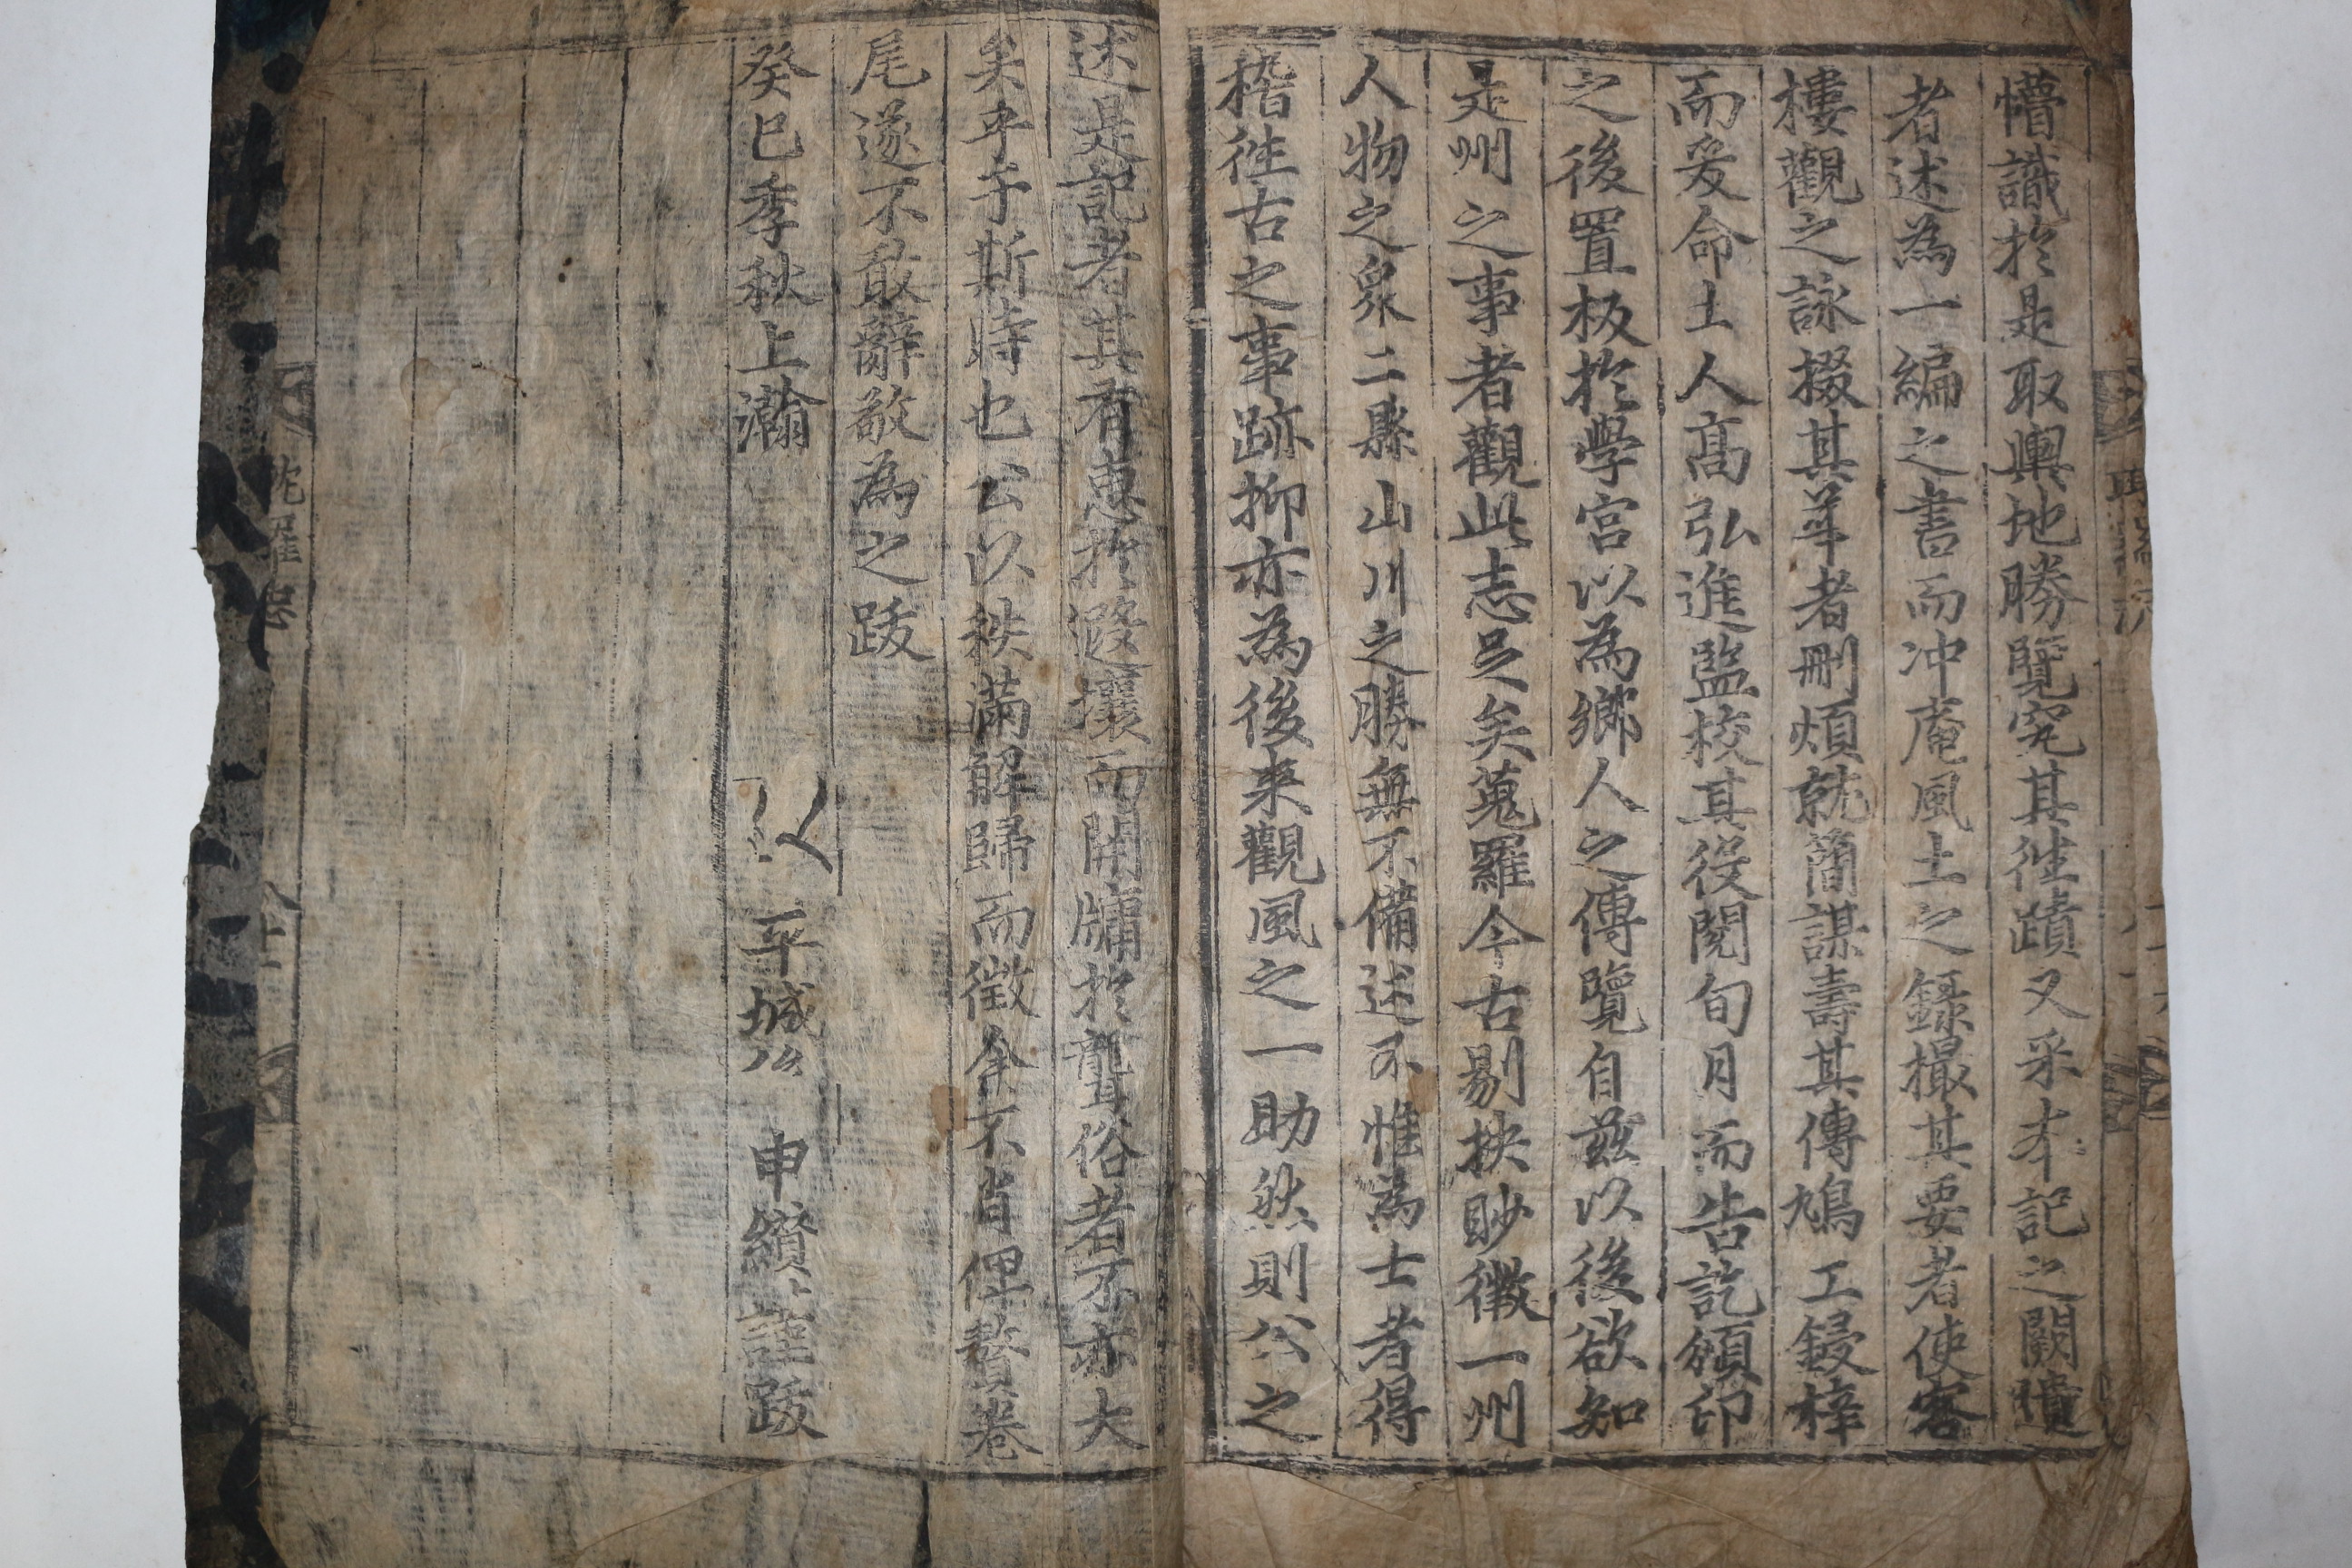 懵識於是取輿地勝覽究其徃蹟又采本記之闕遺
者述為一編之書而冲庵風土之錄撮其要者使客
樓觀之詠掇其華者刪煩就簡謀壽其傳鳩工鋟梓
而爰命土人高弘進監校其役閱旬月而告訖頒印
之後置板於學宮以為鄉人之傳覽自玆以後欲知
是州之事者觀此志足矣蒐羅今古剔抉眇徵一州
人物之泉二縣山川之勝無不備述不惟為士者得
稽徃古之事跡抑亦為後來觀風之一助然則公之
述是記者其有惠於遐壤而開牖於聾俗者不亦大
矣乎于斯時也公以秩滿解歸而徵余不肖俾贅卷
尾遂不敢辭敬為之跋
癸巳季秋上瀚 平城 申纘謹跋
耽羅志